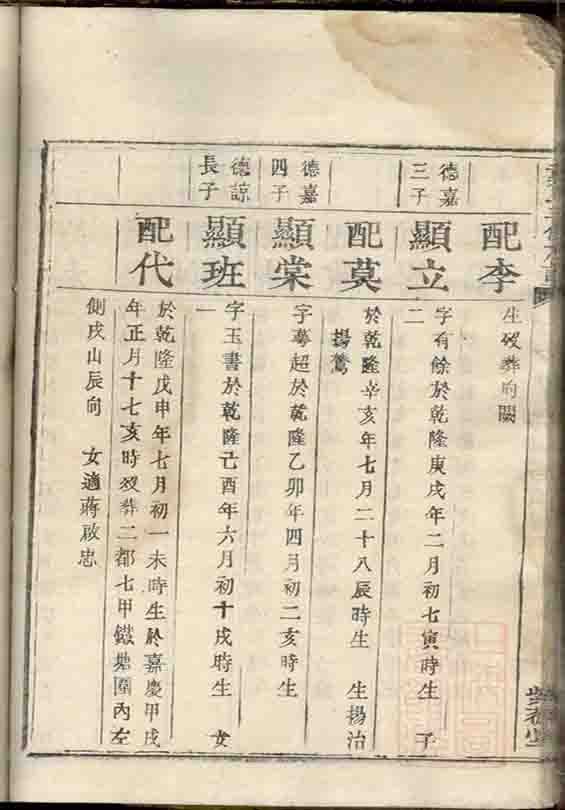 配李
生歿葬均闕
德嘉三子
顯立
字有餘於乾隆庚戌年二月初七寅時生 子
二
配莫
於乾隆辛亥年七月二十八辰時生 生楊治
揚鶩
德嘉四子
顯棠
字粵超於乾隆乙卯年四月初二亥時生
德諒長子
顯班
字玉書於乾隆己酉年六月初十戌時生 女
一
配代
於乾隆戊申年七月初一未時生於嘉慶甲戌
年正月十七亥時歿葬二都七甲鐵塘圍內左
側戌山辰向 女適蔣啟忠